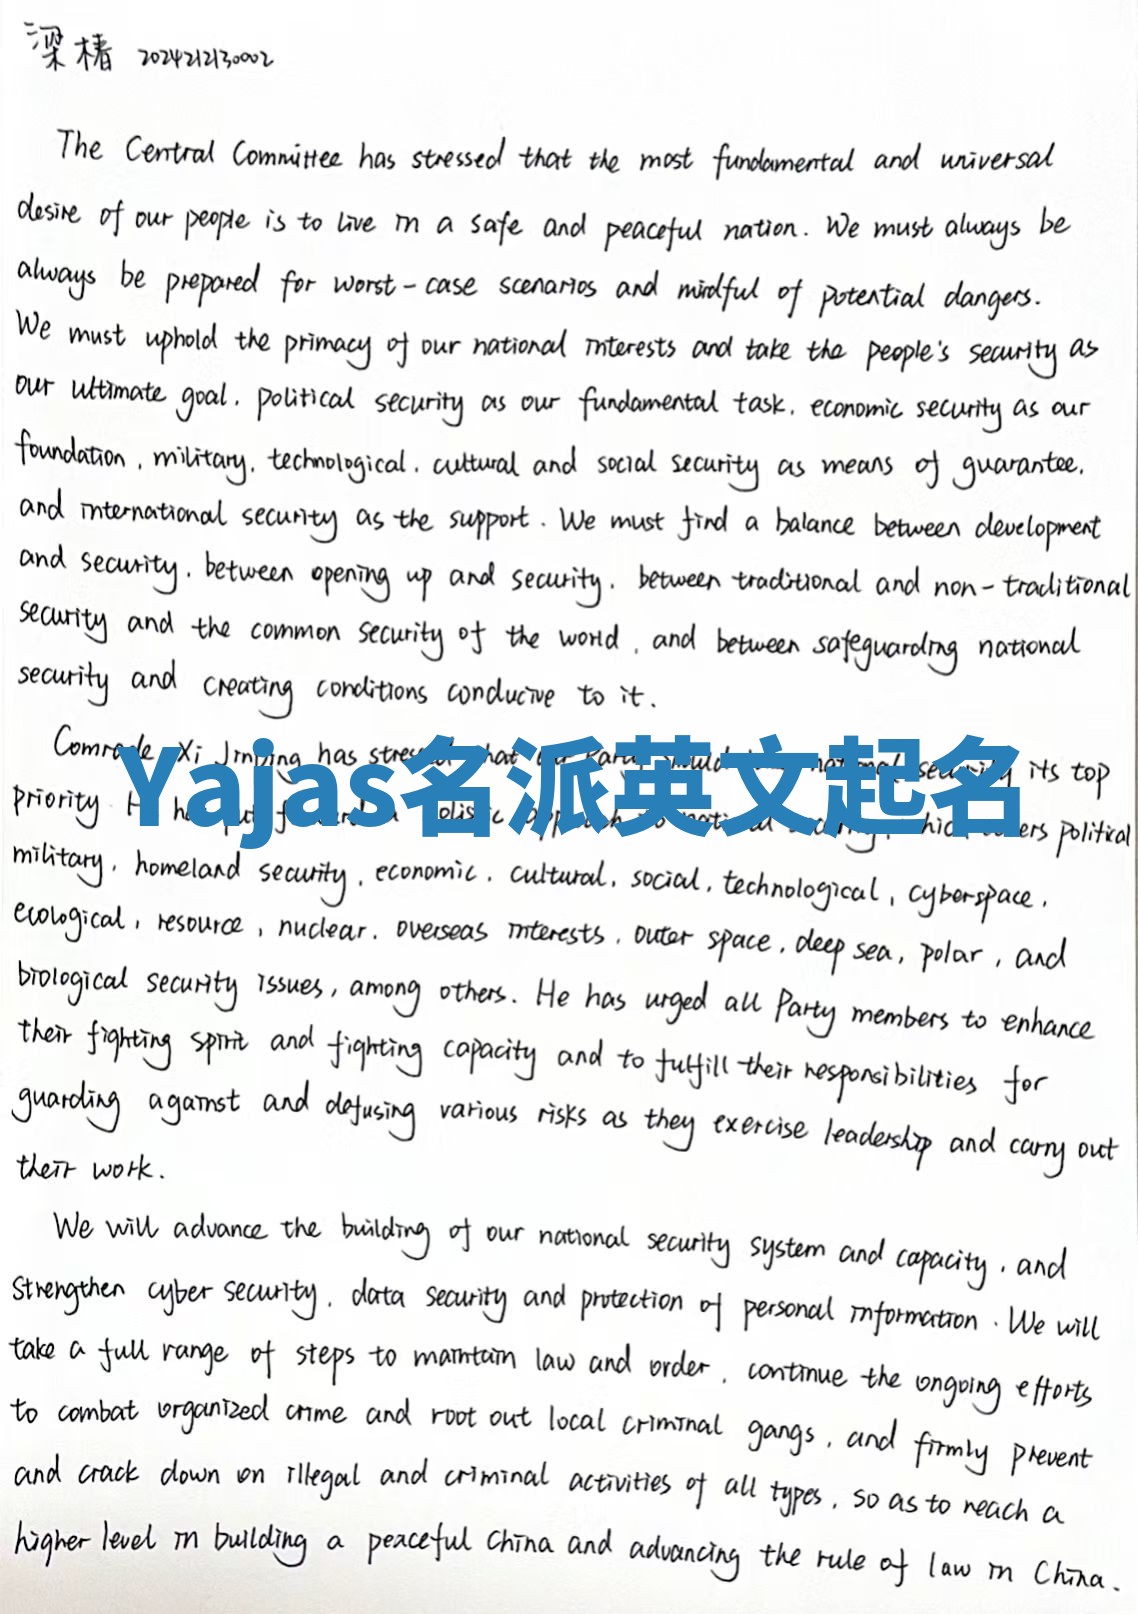 梁椿 2024212130002
The Central Committee has stressed that the most fundamental and universal
desire of our people is to live in a safe and peaceful nation. We must always be
always be prepared for worst-case scenarios and mindful of potential dangers.
We must uphold the primacy of our national interests and take the people's security as
our ultimate goal, political security as our fundamental task, economic security as our
foundation, military, technological, cultural and social security as means of guarantee,
and international security as the support. We must find a balance between development
and security, between opening up and security, between traditional and non-traditional
security and the common security of the world, and between safeguarding national
security and creating conditions conducive to it.
Comrade Xi Jinping has stressed that national security its top
Yajas名派英文起名
priority political
military, homeland security, economic, cultural, social, technological, cyberspace,
ecological, resource, nuclear, overseas interests, outer space, deep sea, polar, and
biological security issues, among others. He has urged all Party members to enhance
their fighting spirit and fighting capacity and to fulfill their responsibilities for
guarding against and defusing various risks as they exercise leadership and carry out
their work.
We will advance the building of our national security system and capacity, and
strengthen cyber security, data security and protection of personal information. We will
take a full range of steps to maintain law and order, continue the ongoing efforts
to combat organized crime and root out local criminal gangs, and firmly prevent
and crack down on illegal and criminal activities of all types, so as to reach a
higher level in building a peaceful China and advancing the rule of law in China.